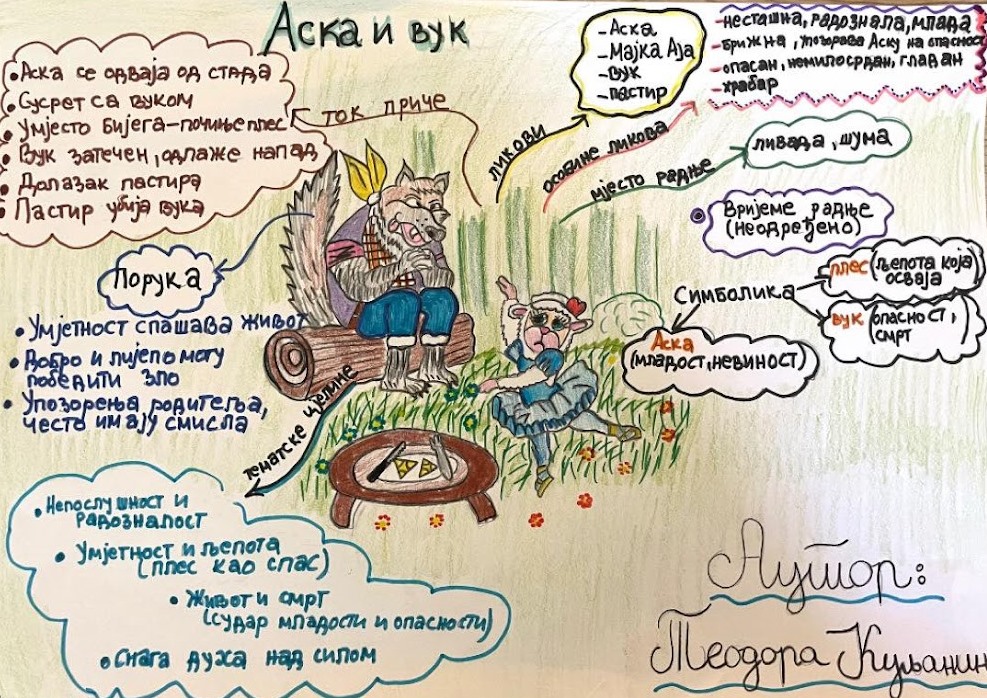 Аска и вук
• Аска се одваја од стада
• Сусрет са вуком
• Умјесто бијега-почиње плес
• Вук затечен, одлаже напад
• Долазак пастира
• Пастир убија вука
ток приче
ликови
-Аска
-Мајка Аја
-вук
-пастир
особине ликова
-несташна, радознала, млада
-брижна, упозорава Аску на опасност
-опасан, немилосрдан, гладан
-храбар
мјесто радње
ливада, шума
Вријеме радње
(неодређено)
Симболика
плес (љепота која
осваја
вук (опасност,
смрт
Аска
(младост, невиност)
Порука
• Умјетност спашава живот
• Добро и лијепо могу
победити зло
• Упозорења родитеља,
често имају смисла
тематске цјелине
• Непослушност и
радозналост
• Умјетност и љепота
(плес као спас)
• Живот и смрт
(судар младости и опасности)
• Снага духа над силом
Аутор:
Теодора Куљанин